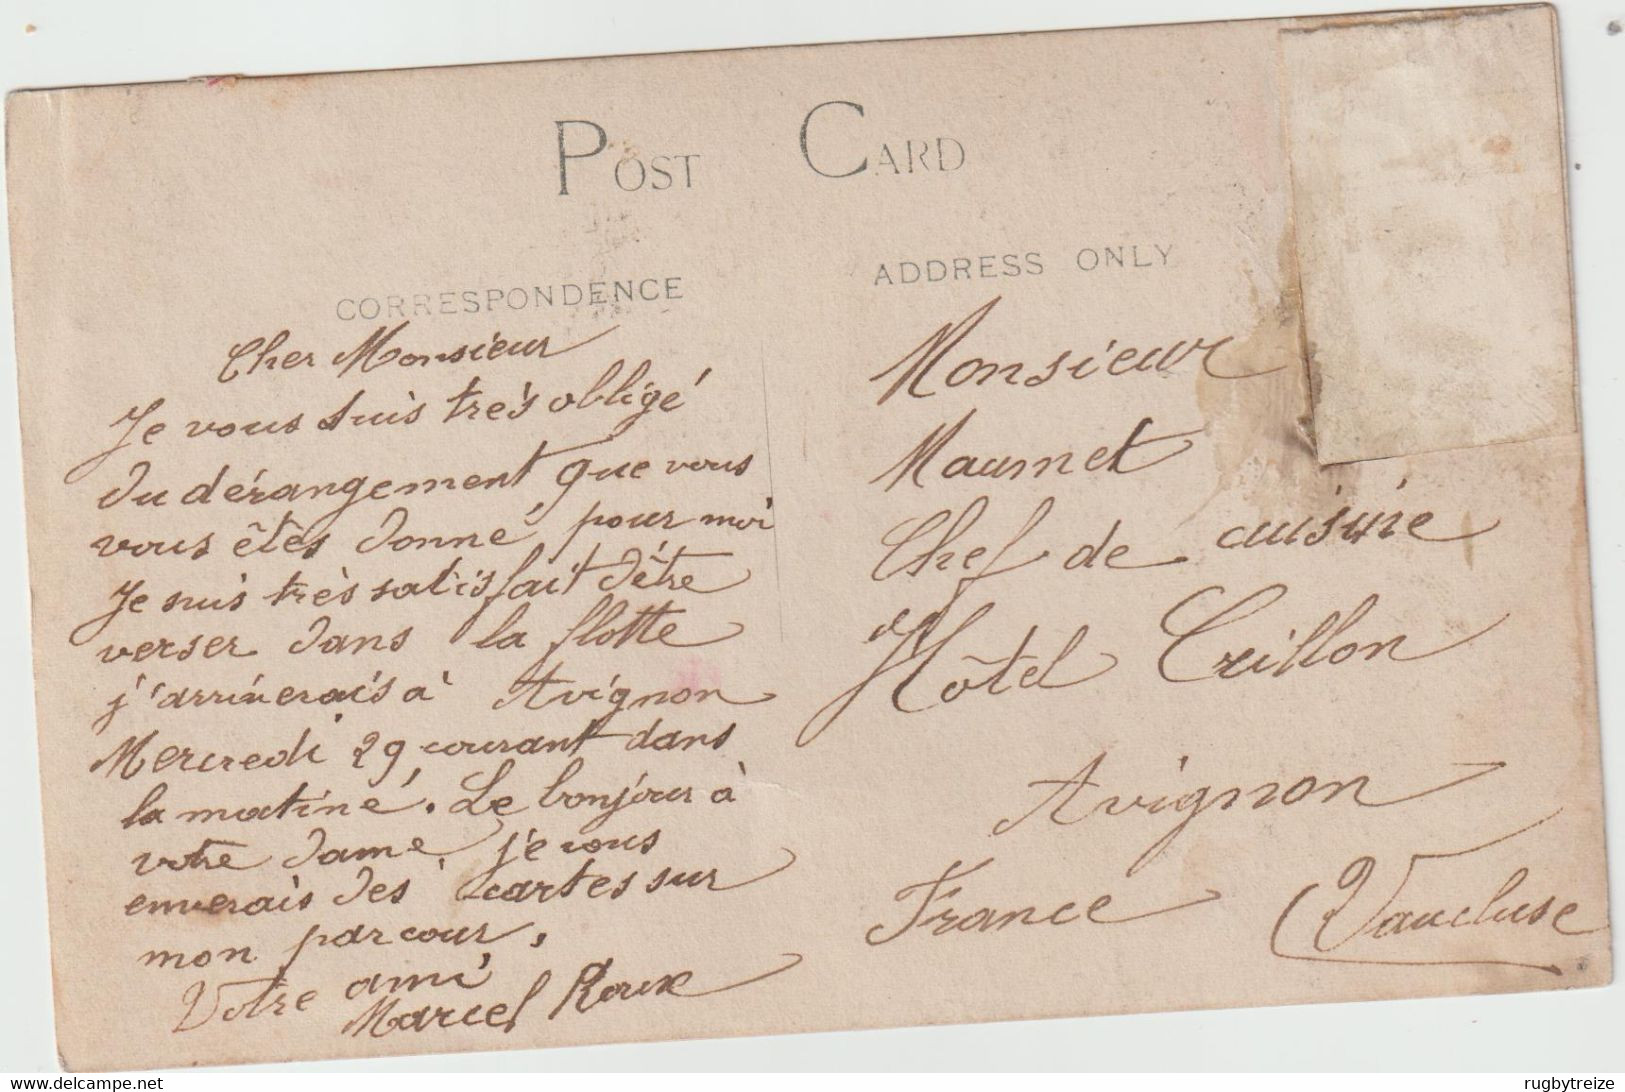 POST CARD
CORRESPONDENCE
ADDRESS ONLY
Cher Monsieur
Je vous suis très obligé
du dérangement que vous
vous êtes donné pour moi
Je suis très satisfait d'être
verser dans la flotte
j'arriverais à Avignon
Mercredi 29 courant dans
la matiné. Le bonjour à
votre dame, je vous
enverais des cartes sur
mon parcour,
Votre ami
Marcel Roux
Monsieur
Maumet
Chef de cuisine
Hôtel Crillon
Avignon
France (Vaucluse
rugbytreize
www.delcampe.net